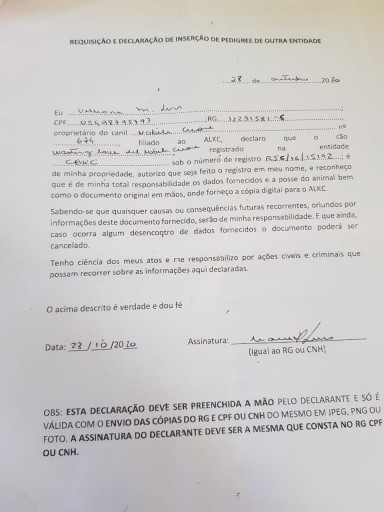 REQUISIÇÃO E DECLARAÇÃO DE INSERÇÃO DE PEDIGREE DE OUTRA ENTIDADE
28 de outubro 2020
Eu M. Luis
CPF RG 12231581-6
proprietário do canil nº
674, filiado ao ALKC, declaro que o cão
registrado na entidade
CBKC sob o número de registro RSG/16/15192, é
de minha propriedade, autorizo que seja feito o registro em meu nome, e reconheço
que é de minha total responsabilidade os dados fornecidos e a posse do animal bem
como o documento original em mãos, onde forneço a cópia digital para o ALKC.
Sabendo-se que quaisquer causas ou consequências futuras recorrentes, oriundos por
informações deste documento fornecido, serão de minha responsabilidade. E que ainda,
caso ocorra algum desencontro de dados fornecidos o documento poderá ser
cancelado.
Tenho ciência dos meus atos e me responsabilizo por ações cíveis e criminais que
possam recorrer sobre as informações aqui declaradas.
O acima descrito é verdade e dou fé
Data: 28/10/2020 Assinatura:
(Igual ao RG ou CNH)
OBS: ESTA DECLARAÇÃO DEVE SER PREENCHIDA A MÃO PELO DECLARANTE E SÓ É
VÁLIDA COM O ENVIO DAS CÓPIAS DO RG E CPF OU CNH DO MESMO EM JPEG, PNG OU
FOTO. A ASSINATURA DO DECLARANTE DEVE SER A MESMA QUE CONSTA NO RG CPF
OU CNH.